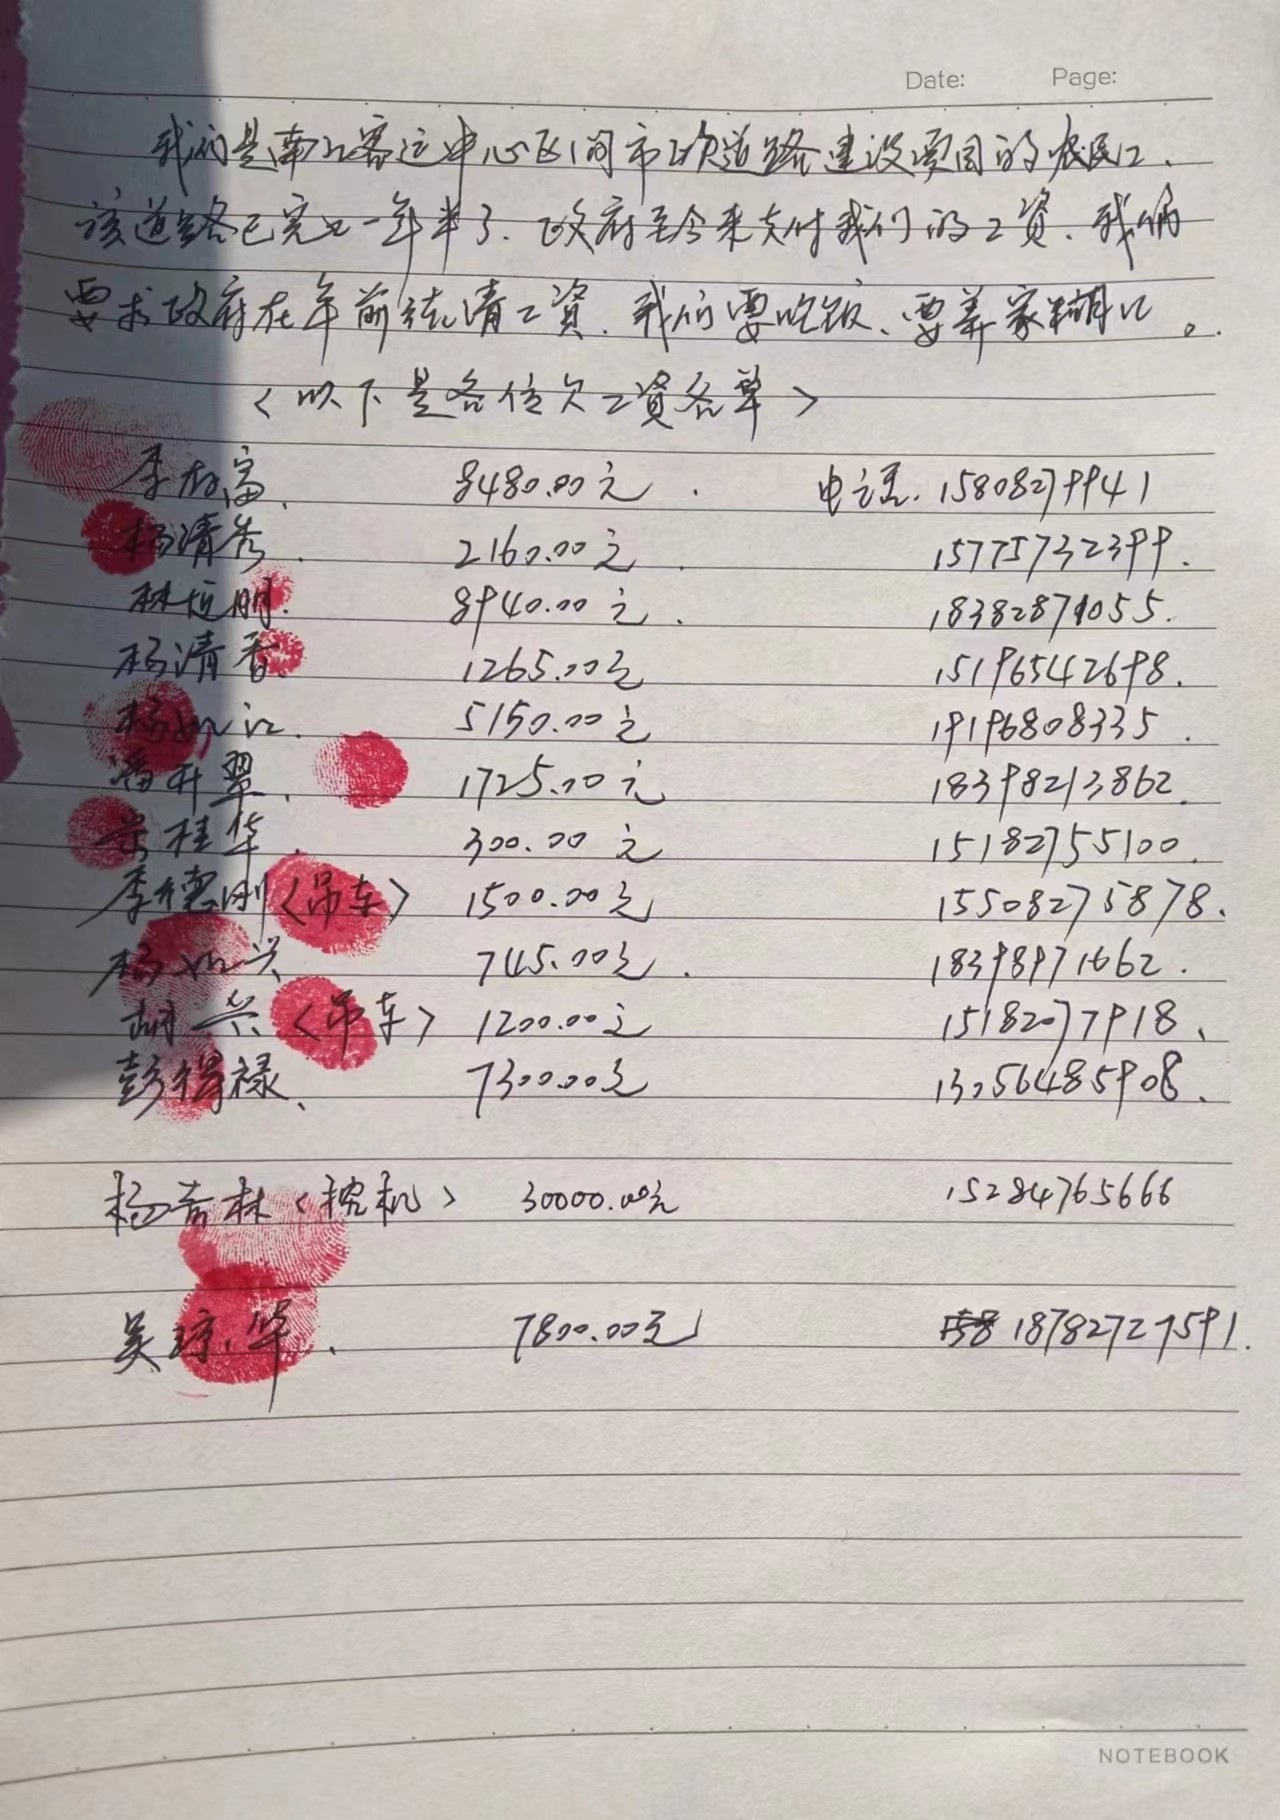 Date: Page:
我们是南江客运中心区间市政道路建设项目的农民工.
该道路已完工一年半了.政府至今未支付我们的工资.我们
要求政府在年前结清工资.我们要吃饭、要养家糊口。
<以下是各位欠工资名单>
李 富. 8480.00元. 电话.15808279941
杨清秀. 2160.00元. 15775732399.
林 明. 8940.00元. 18382871055.
杨清香. 1265.00元 15196542698.
杨如江. 5150.00元 19196808335.
潘开翠. 1725.00元 18398213862.
桂华. 300.00元 15182755100.
李德刚<吊车> 1500.00元 15508275878.
杨如兴 745.00元. 18398971662.
胡兴<吊车> 1200.00元 15182077918、
彭得禄、 7300.00元 13056485908、
杨青林<挖机> 30000.00元 15284765666
吴琼华. 7800.00元 18782727591.
NOTEBOOK